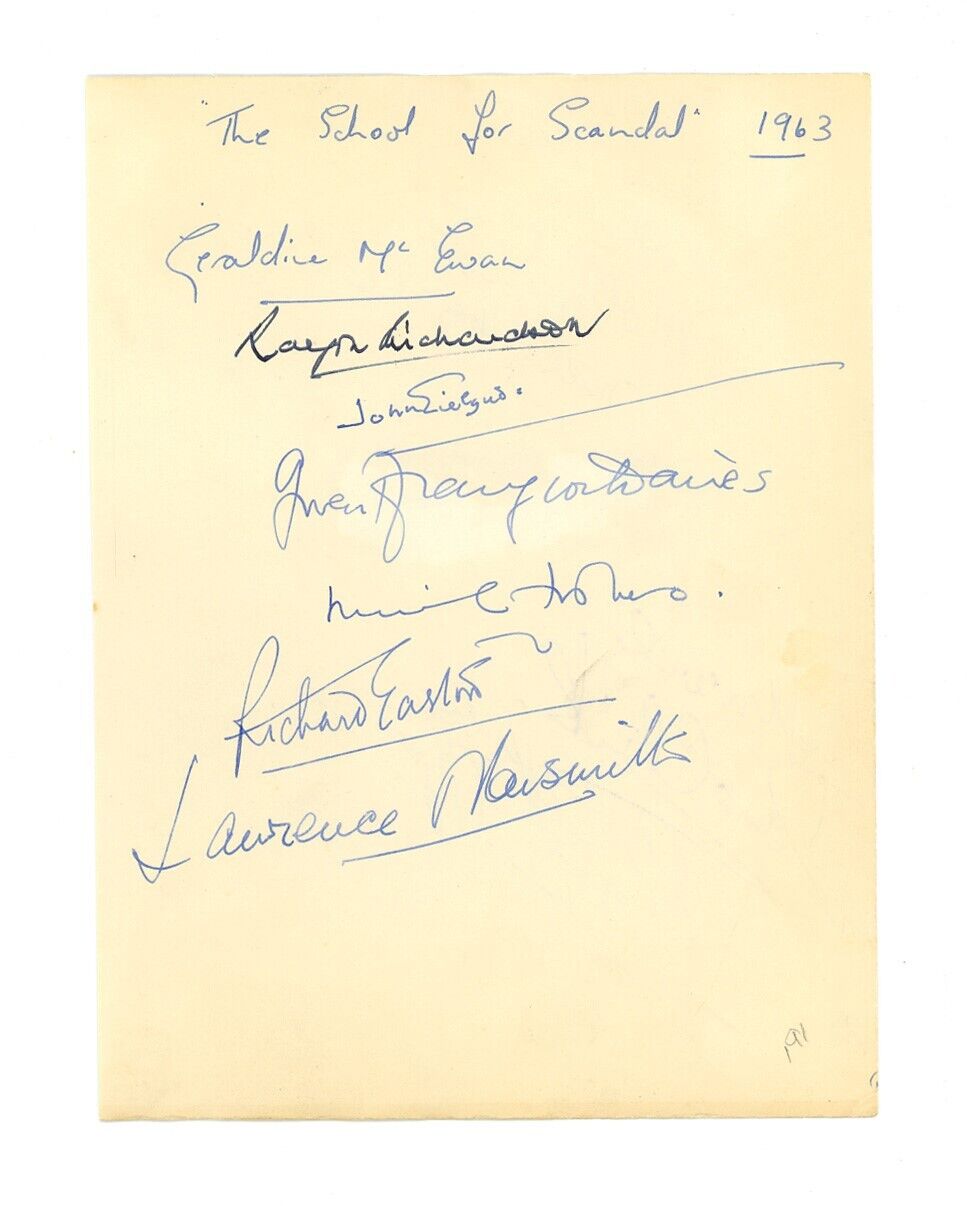 "The School for Scandal" 1963
Geraldine Mc Ewan
Ralph Richardson
John Gielgud.
Gwen Ffrangcon Davies
Richard Easton
Laurence Naismith